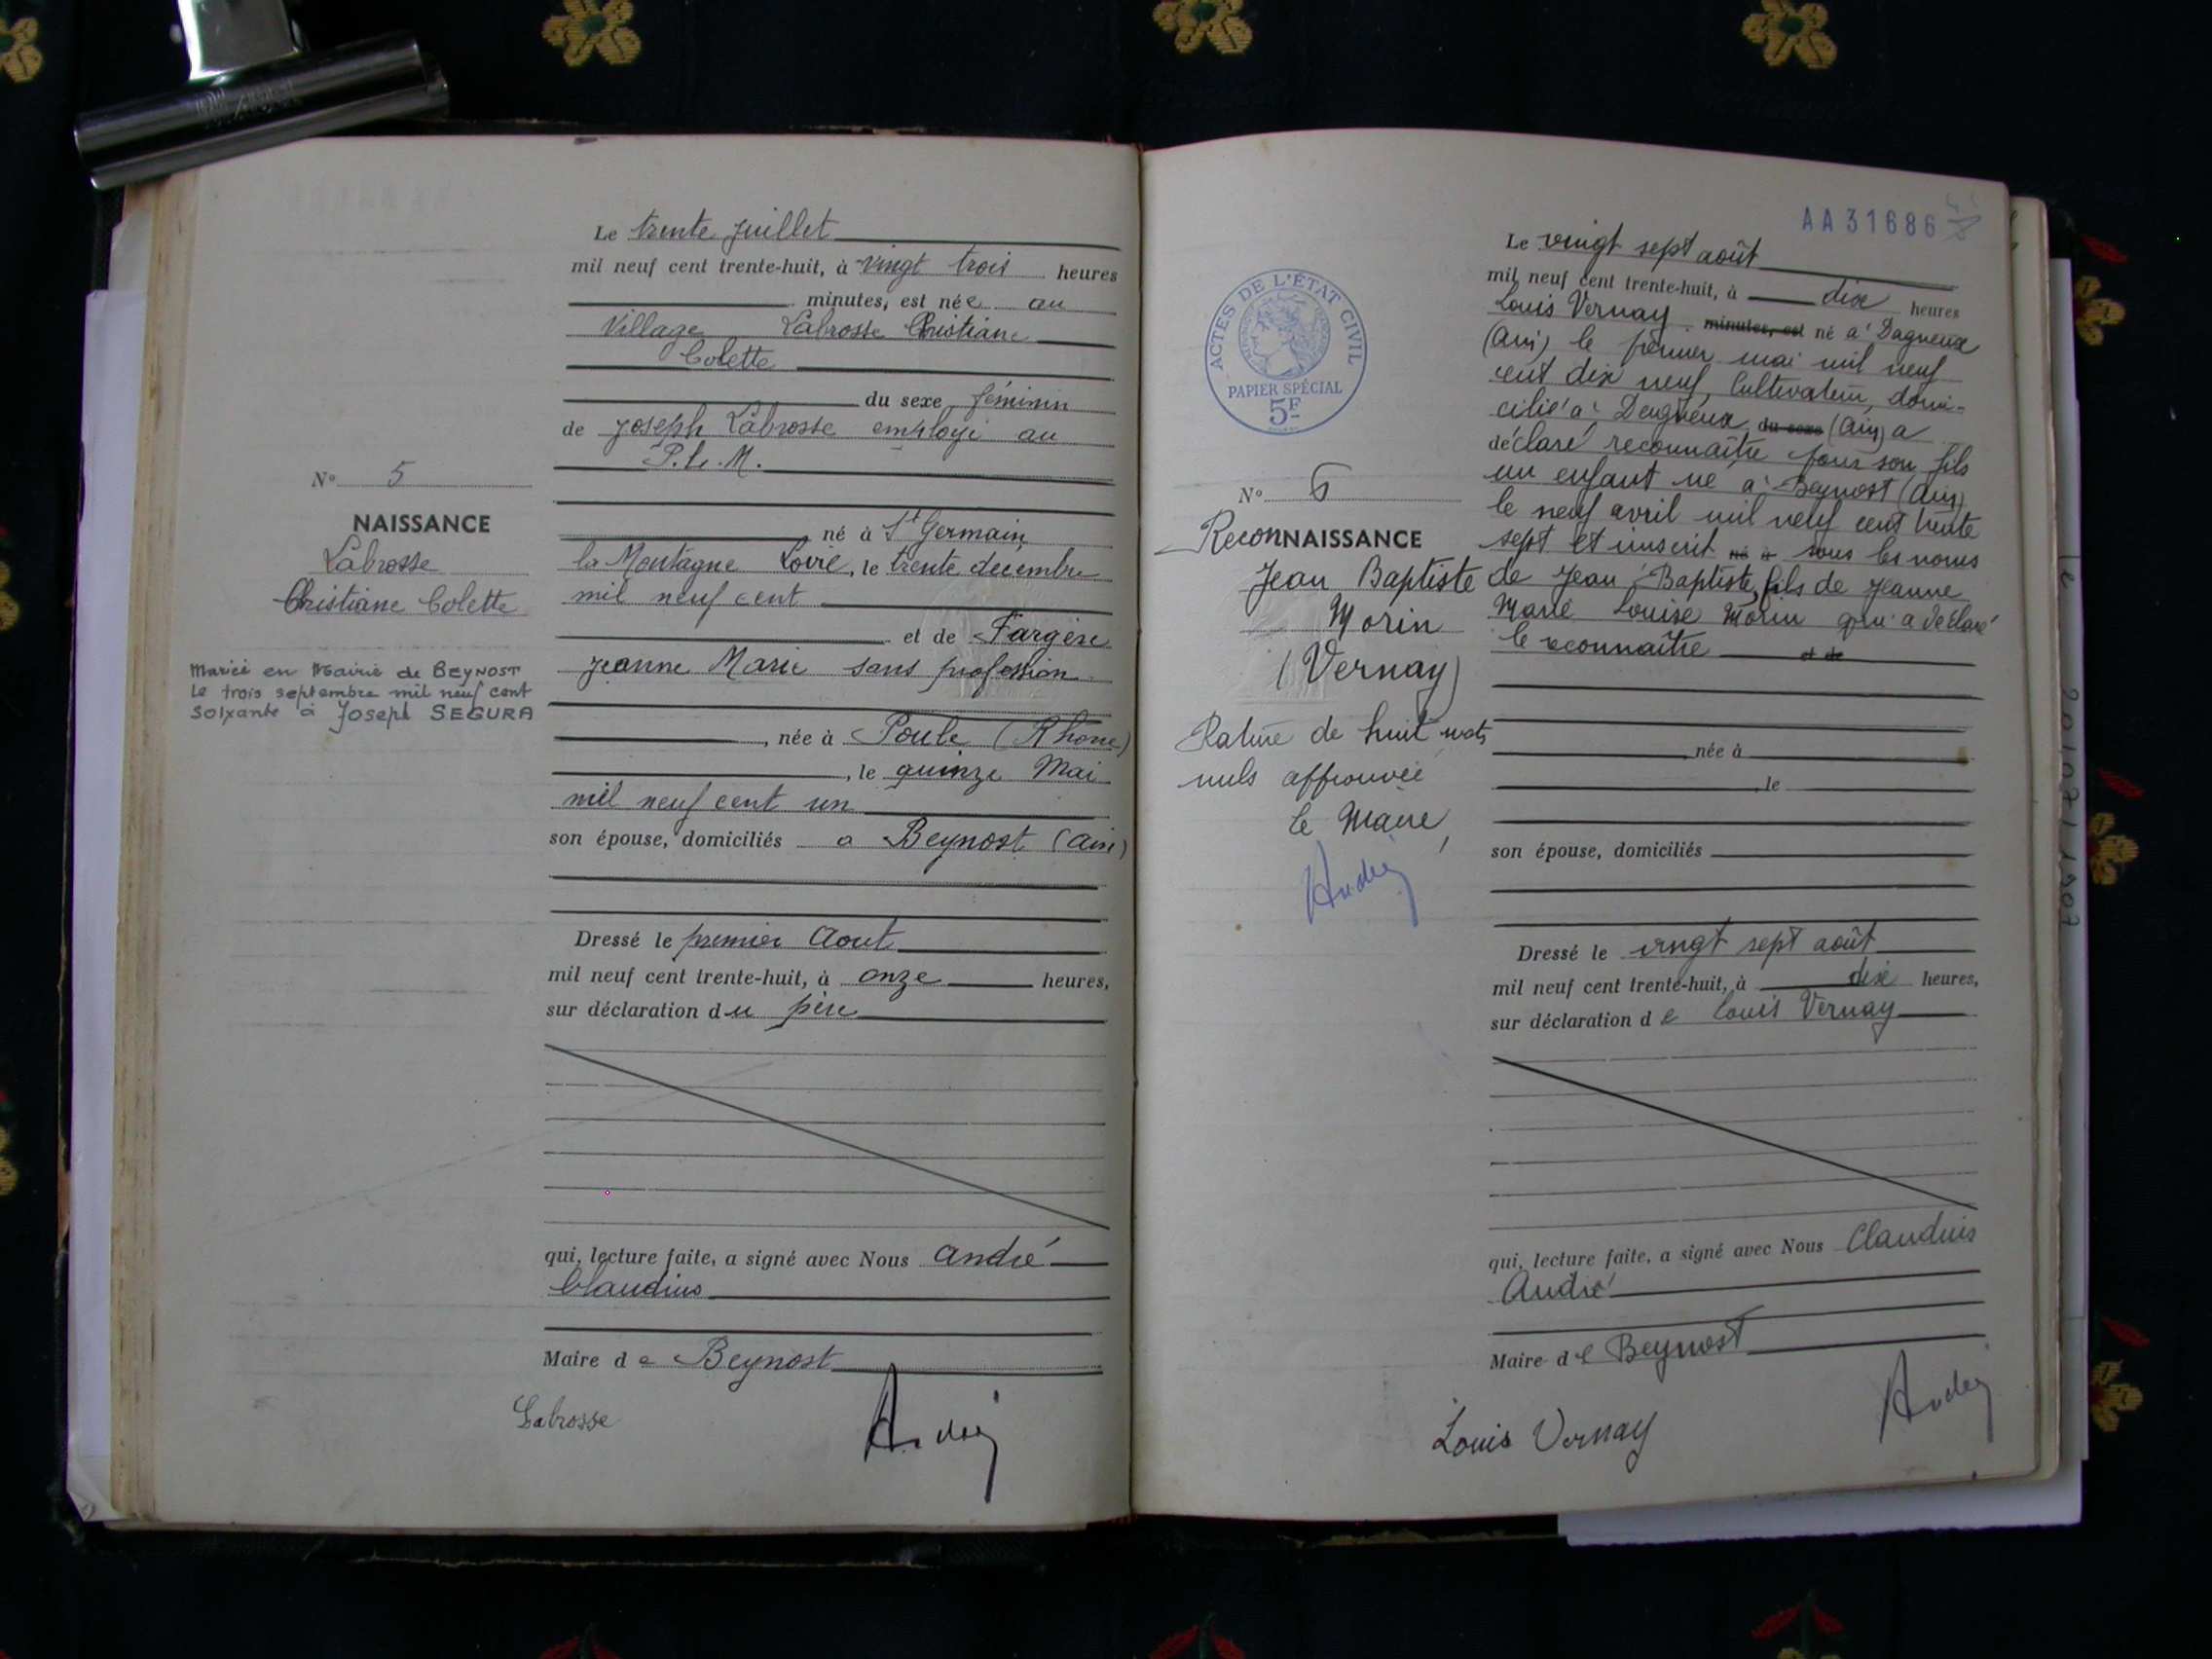 Le trente juillet
mil neuf cent trente-huit, à vingt trois heures
minutes, est née au
Village Labrosse Christiane
Colette
du sexe féminin
de Joseph Labrosse employé au
P.L.M.
né à St Germain
la Montagne Loire, le trente décembre
mil neuf cent
et de Fargère
Jeanne Marie sans profession
, née à Poule (Rhône)
, le quinze Mai
mil neuf cent un
son épouse, domiciliés a Beynost (Ain)
Dressé le premier Aout
mil neuf cent trente-huit, à onze heures,
sur déclaration du père
qui, lecture faite, a signé avec Nous André
Claudius
Maire de Beynost
Labrosse
André
N° 5
NAISSANCE
Labrosse
Christiane Colette
Mariée en Mairie de BEYNOST
Le trois septembre mil neuf cent
soixante à Joseph SEGURA
AA31686
ACTES DE L'ÉTAT CIVIL
PAPIER SPÉCIAL
5F
N° 6
ReconNAISSANCE
Jean Baptiste
Morin
(Vernay)
Rature de huit mots
nuls approuvée
Le Maire,
André
Le vingt sept août
mil neuf cent trente-huit, à dix heures
Louis Vernay minutes, est né à Dagneux
(Ain) le premier mai mil neuf
cent dix neuf, Cultivateur, domi-
cilié à Dagneux du sexe (Ain) a
déclaré reconnaître pour son fils
un enfant né à Beynost (Ain)
le neuf avril mil neuf cent trente
sept et inscrit né à sous les noms
de Jean Baptiste, fils de Jeanne
Marie Louise Morin qui a déclaré
le reconnaître et de
née à
, le
son épouse, domiciliés
Dressé le vingt sept août
mil neuf cent trente-huit, à dix heures,
sur déclaration de Louis Vernay
qui, lecture faite, a signé avec Nous Claudius
André
Maire de Beynost
Louis Vernay
André